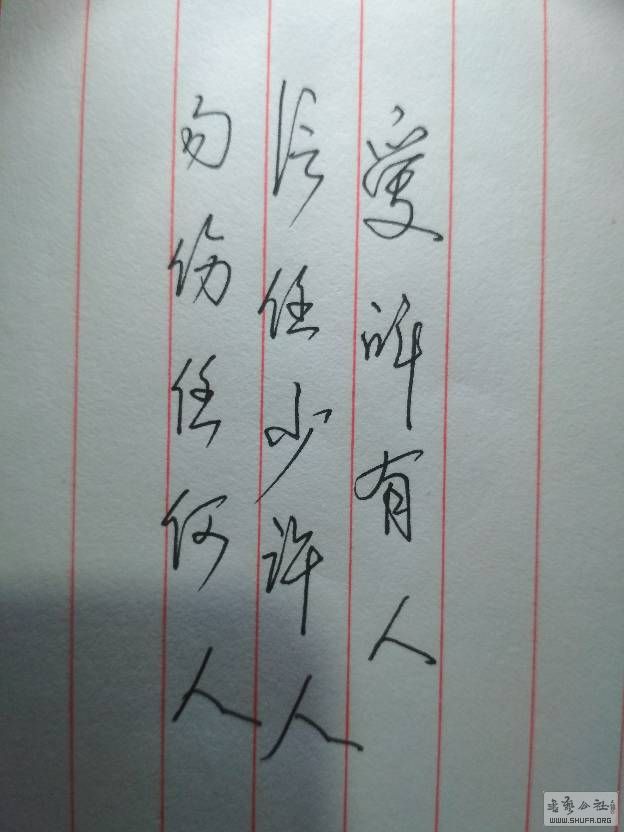 爱所有人
信任少许人
勿伤任何人
书艺公社
WWW.SHUFA.ORG